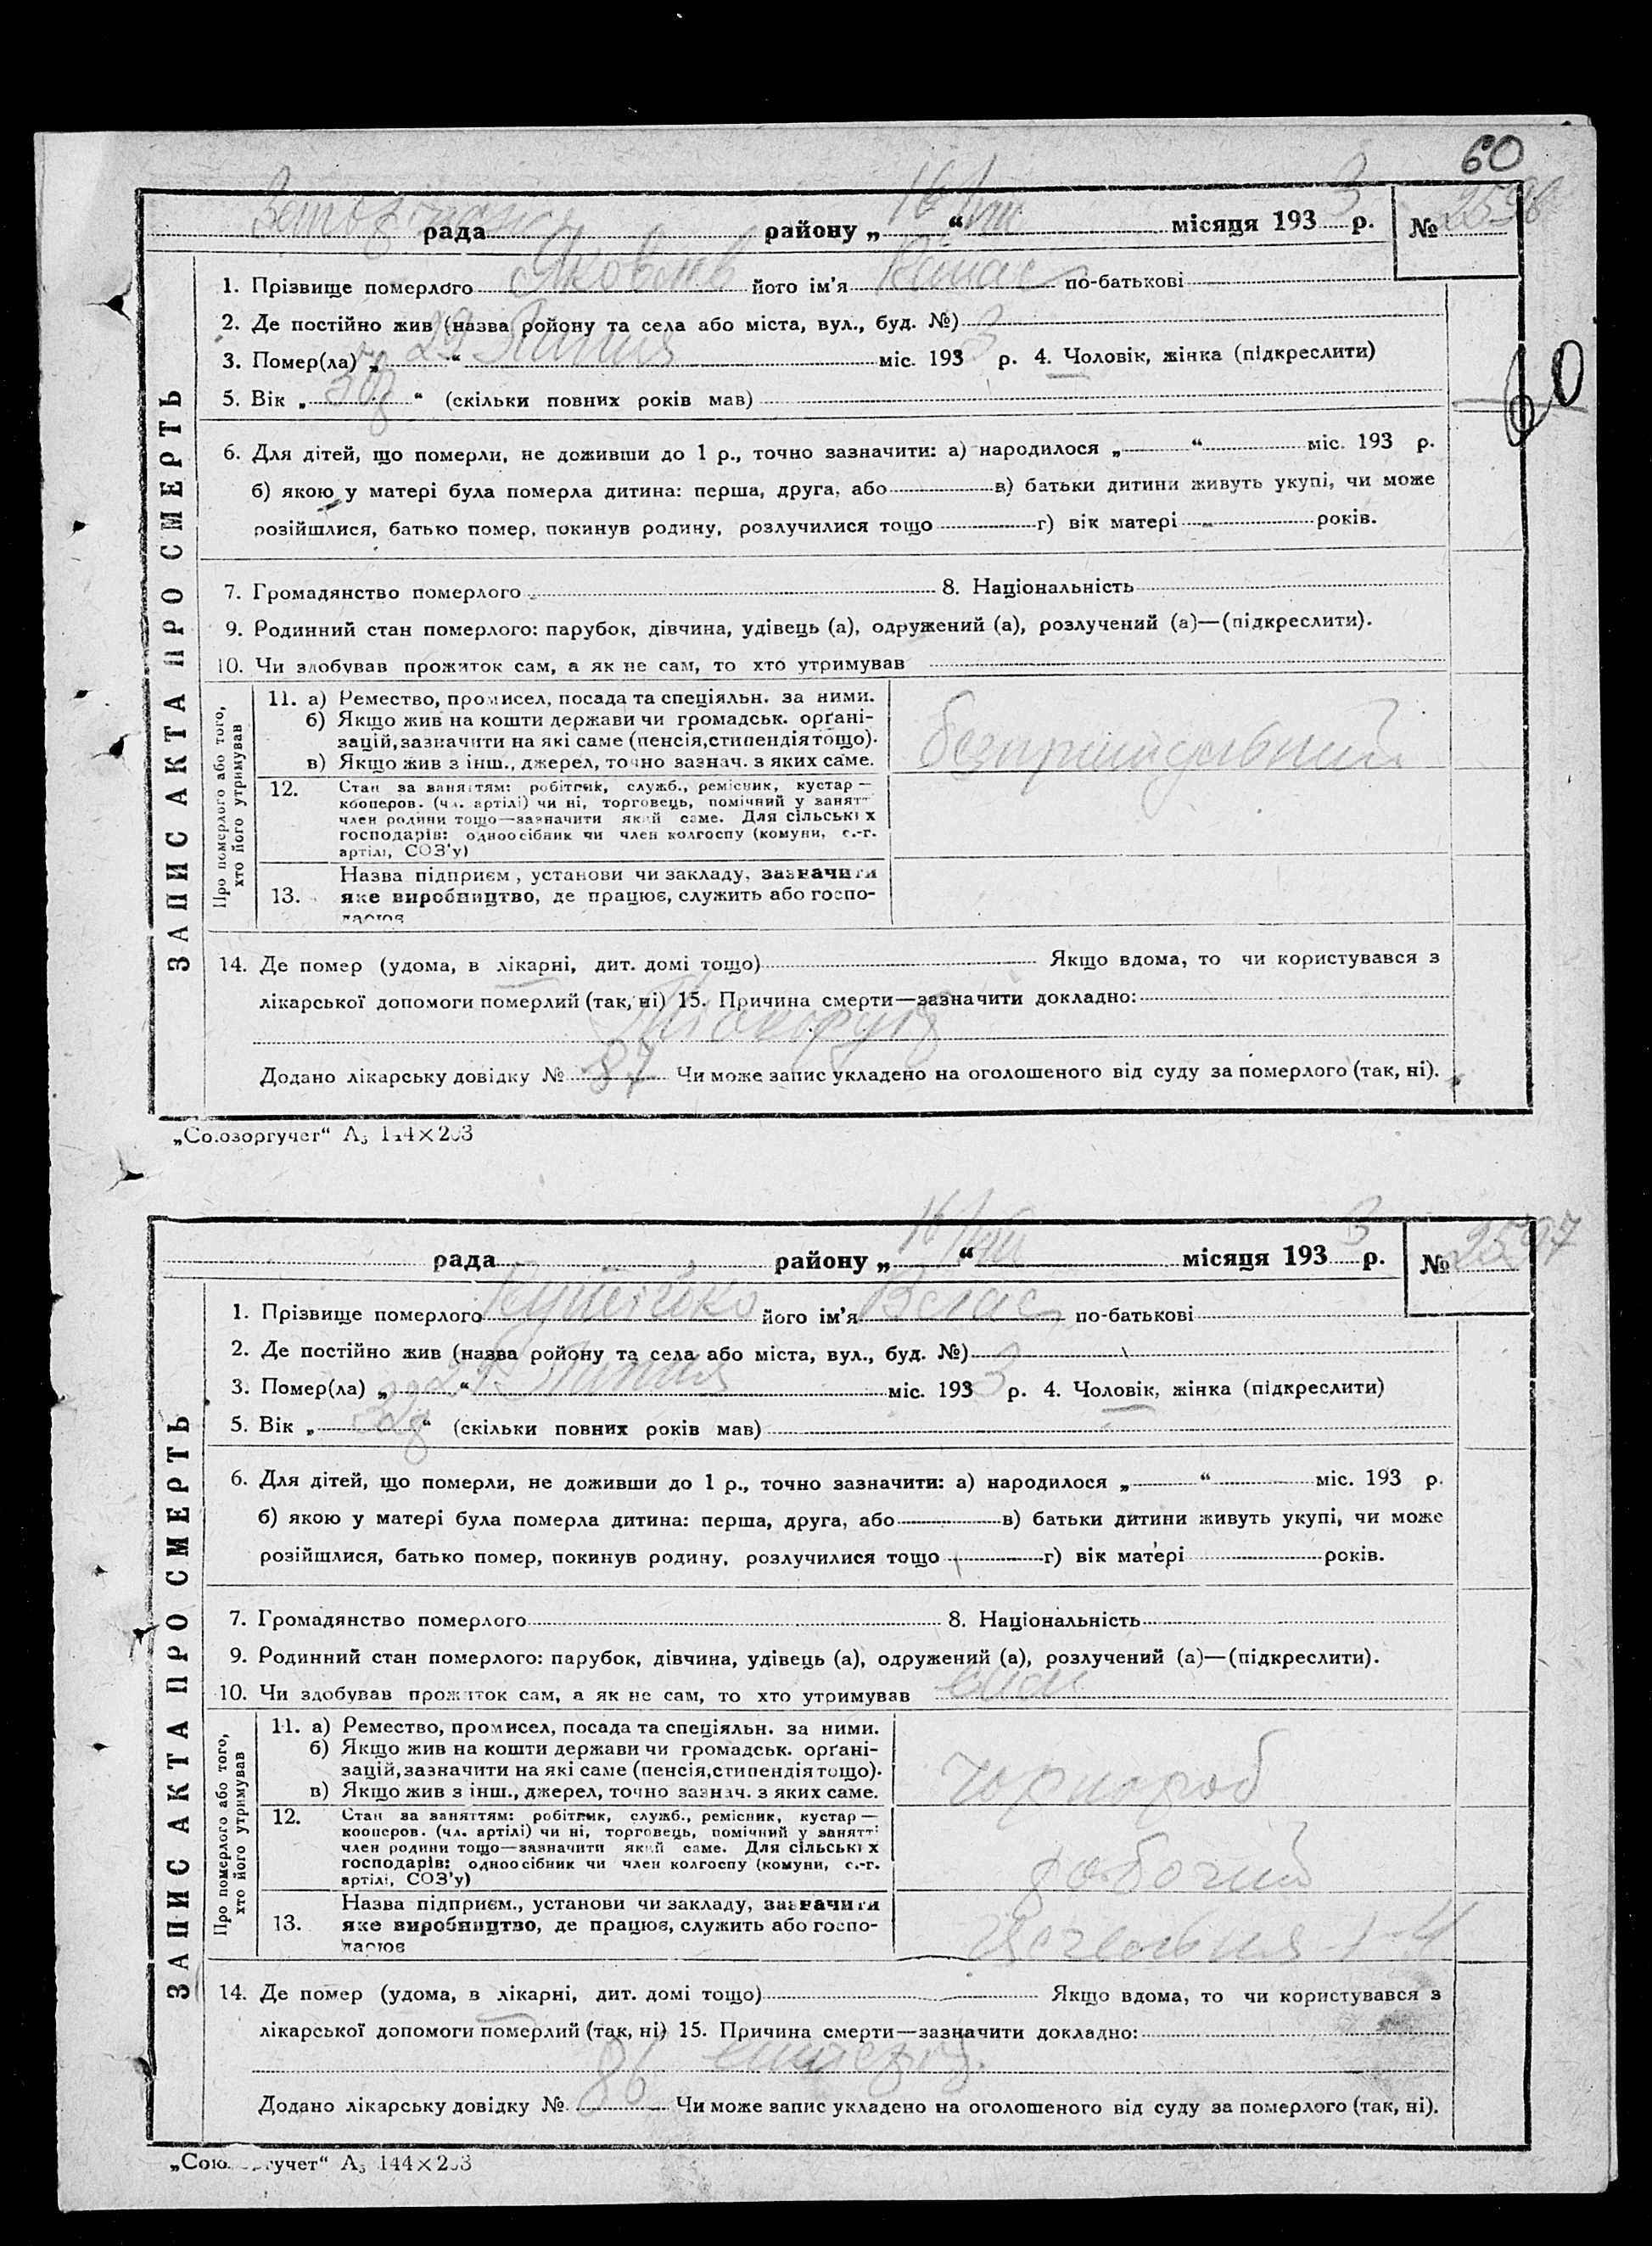 60
16/VIII 3 2596
рада району „ “ місяця 193 р. №
1. Прізвище померлого Яковлєв його ім’я по-батькові
2. Де постійно жив (назва ройону та села або міста, вул., буд. №)
3. Помер(ла) „ 29 “ Липня міс. 193 3 р. 4. Чоловік, жінка (підкреслити)
5. Вік „ “ (скільки повних років мав)
60
6. Для дітей, що померли, не доживши до 1 р., точно зазначити: а) народилося „ “ міс. 193 р.
б) якою у матері була померла дитина: перша, друга, або в) батьки дитини живуть укупі, чи може
розійшлися, батько помер, покинув родину, розлучилися тощо г) вік матері років.
7. Громадянство померлого 8. Національність
9. Родинний стан померлого: парубок, дівчина, удівець (а), одружений (а), розлучений (а)—(підкреслити).
10. Чи здобував прожиток сам, а як не сам, то хто утримував
ЗАПИС АКТА ПРО СМЕРТЬ
Про померлого або того,
хто його утримував
11. а) Ремество, промисел, посада та спеціяльн. за ними.
б) Якщо жив на кошти держави чи громадськ. орґані-
зацій, зазначити на які саме (пенсія, стипендія тощо).
в) Якщо жив з інш., джерел, точно зазнач. з яких саме.
безпритульний
12. Стан за заняттям: робітник, служб., ремісник, кустар —
кооперов. (чл. артілі) чи ні, торговець, помічний у занятт
член родини тощо—зазначити який саме. Для сільських
господарів: одноосібник чи член колгоспу (комуни, с.-г.
артілі, СОЗ’у)
13. Назва підприєм., установи чи закладу, зазначити
яке виробництво, де працює, служить або госпо-
дарює
14. Де помер (удома, в лікарні, дит. домі тощо) Якщо вдома, то чи користувався з
лікарської допомоги померлий (так, ні) 15. Причина смерти—зазначити докладно:
Додано лікарську довідку № 87 Чи може запис укладено на оголошеного від суду за померлого (так, ні).
„Союзоргучет“ А₅ 144×203
16/VIII 3 2597
рада району „ “ місяця 193 р. №
1. Прізвище померлого його ім’я Влас по-батькові
2. Де постійно жив (назва ройону та села або міста, вул., буд. №)
3. Помер(ла) „ “ Липня міс. 193 3 р. 4. Чоловік, жінка (підкреслити)
5. Вік „ 32 р “ (скільки повних років мав)
6. Для дітей, що померли, не доживши до 1 р., точно зазначити: а) народилося „ “ міс. 193 р.
б) якою у матері була померла дитина: перша, друга, або в) батьки дитини живуть укупі, чи може
розійшлися, батько помер, покинув родину, розлучилися тощо г) вік матері років.
7. Громадянство померлого 8. Національність
9. Родинний стан померлого: парубок, дівчина, удівець (а), одружений (а), розлучений (а)—(підкреслити).
10. Чи здобував прожиток сам, а як не сам, то хто утримував сам
ЗАПИС АКТА ПРО СМЕРТЬ
Про померлого або того,
хто його утримував
11. а) Ремество, промисел, посада та спеціяльн. за ними.
б) Якщо жив на кошти держави чи громадськ. орґані-
зацій, зазначити на які саме (пенсія, стипендія тощо).
в) Якщо жив з інш., джерел, точно зазнач. з яких саме.
чорнороб
12. Стан за заняттям: робітник, служб., ремісник, кустар —
кооперов. (чл. артілі) чи ні, торговець, помічний у занятті
член родини тощо—зазначити який саме. Для сільських
господарів: одноосібник чи член колгоспу (комуни, с.-г.
артілі, СОЗ’у)
робочий
13. Назва підприєм., установи чи закладу, зазначити
яке виробництво, де працює, служить або госпо-
дарює
14. Де помер (удома, в лікарні, дит. домі тощо) Якщо вдома, то чи користувався з
лікарської допомоги померлий (так, ні) 15. Причина смерти—зазначити докладно:
Додано лікарську довідку № 86 Чи може запис укладено на оголошеного від суду за померлого (так, ні).
„Союзоргучет“ А₅ 144×203